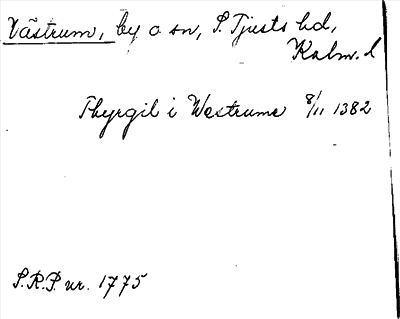 Västrum, by o sn, S. Tjusts hd,
Kalm. l
Thyrgil i Westrume 8/11 1382
S.R.P. nr. 1775